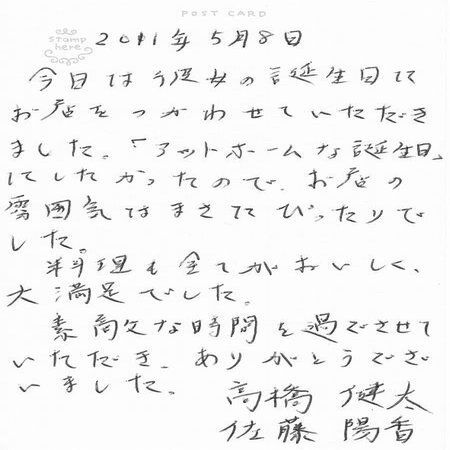 POST CARD
stamp
here
2011年5月8日
今日は彼女の誕生日に
お店をつかわせていただき
ました。「アットホームな誕生日」
にしたかったので、お店の
雰囲気はまさにぴったりで
した。
料理も全てがおいしく、
大満足でした。
素敵な時間を過ごさせて
いただき、ありがとうござ
いました。
高橋 健太
佐藤 陽香